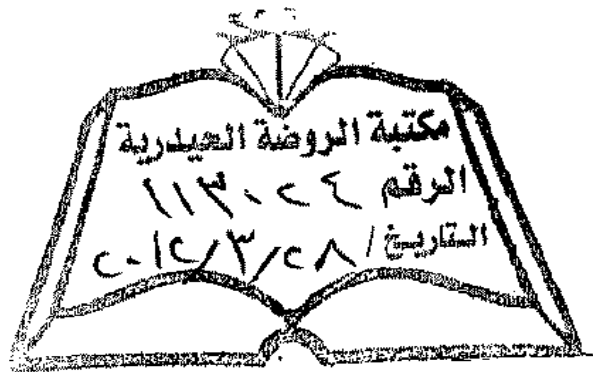 مكتبة الروضة الحيدرية
الرقم ١١٣٠٢٤
التاريخ / ٢٠١٢/٣/٢٨